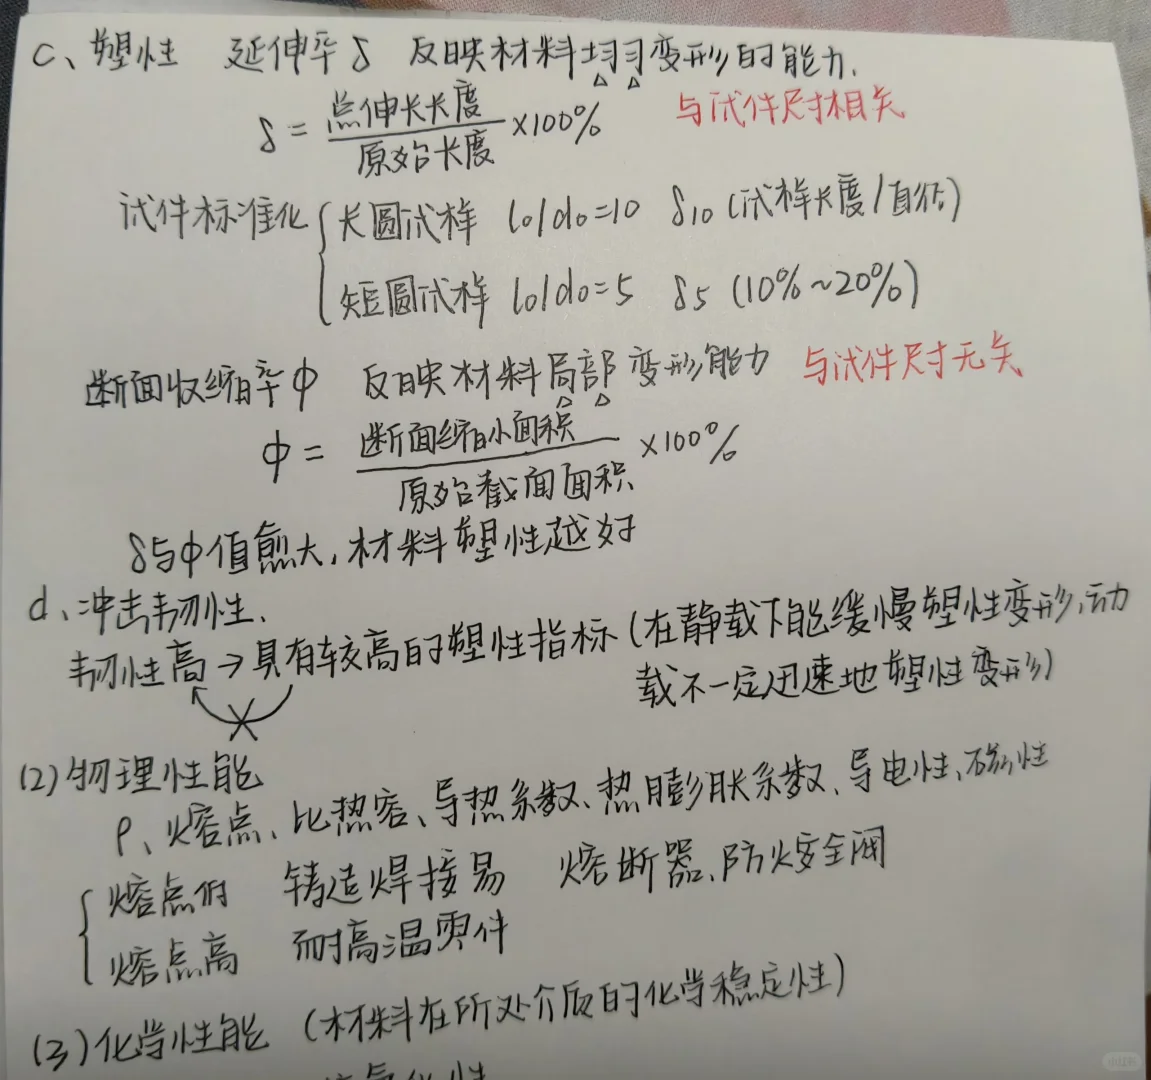 c、塑性 延伸率δ 反映材料均匀变形的能力.
δ = 总伸长长度/原始长度 ×100% 与试件尺寸相关
试件标准化 { 长圆试样 l0/d0=10 δ10 (试样长度/直径)
短圆试样 l0/d0=5 δ5 (10%~20%)
断面收缩率φ 反映材料局部变形能力 与试件尺寸无关
φ = 断面缩小面积/原始截面面积 ×100%
δ与φ值愈大,材料塑性越好
d、冲击韧性.
韧性高→具有较高的塑性指标(在静载下能缓慢塑性变形,动
载不一定迅速地塑性变形)
(2)物理性能
ρ、熔点、比热容、导热系数、热膨胀系数、导电性、磁性
{ 熔点低 铸造焊接易 熔断器、防火安全阀
熔点高 耐高温零件
(3)化学性能 (材料在所处介质的化学稳定性)
氧化性
小红书